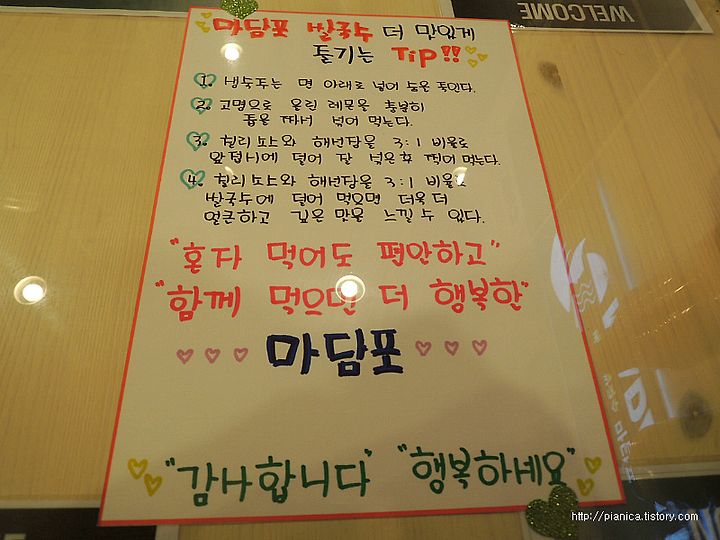 WELCOME
마담포 쌀국수 더 맛있게
즐기는 TIP!!
1. 냉숙주는 면 아래로 넣어 숨을 죽인다.
2. 고명으로 올린 레몬을 충분히
즙을 짜서 넣어 먹는다.
3. 칠리소스와 해선장을 3:1 비율로
앞접시에 덜어 잘 섞은후 찍어 먹는다.
4. 칠리소스와 해선장을 3:1 비율로
쌀국수에 덜어 먹으면 더욱 더
얼큰하고 깊은 맛을 느낄 수 있다.
"혼자 먹어도 편안하고"
"함께 먹으면 더 행복한"
마담포
"감사합니다" "행복하세요"
http://pianica.tistory.com